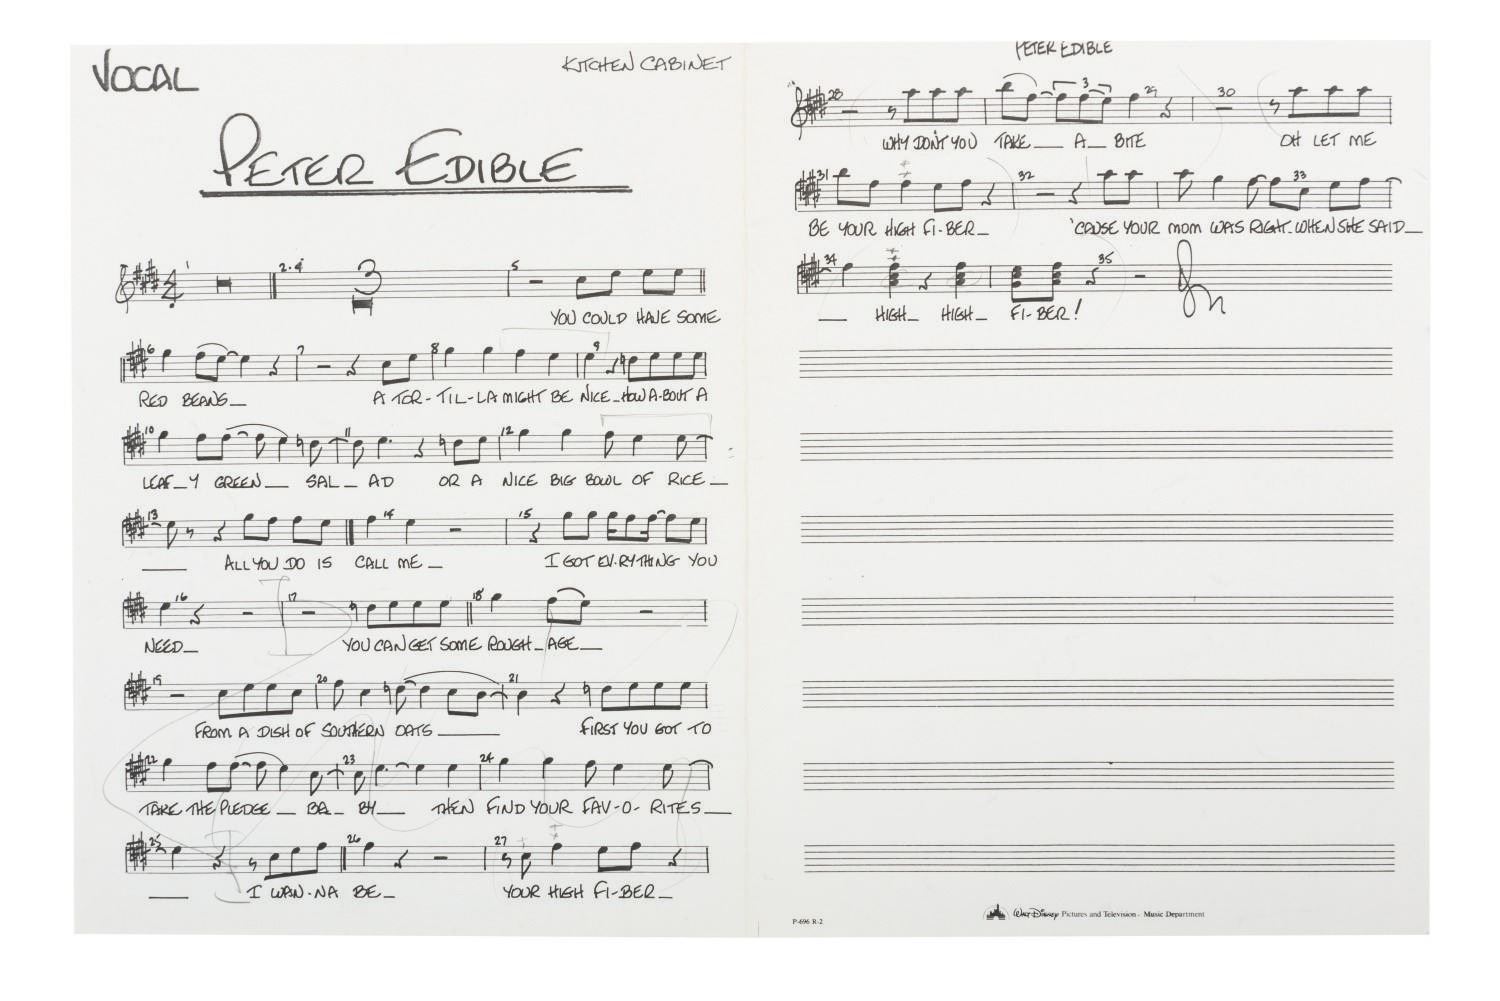 VOCAL
KITCHEN CABINET
PETER EDIBLE
YOU COULD HAVE SOME
RED BEANS_
A TOR-TIL-LA MIGHT BE NICE_HOW A-BOUT A
LEAF_Y GREEN__ SAL_AD OR A NICE BIG BOWL OF RICE_
__ ALL YOU DO IS CALL ME_ I GOT EV.RYTHING YOU
NEED_ YOU CAN GET SOME ROUGH_AGE__
FROM A DISH OF SOUTHERN OATS ____ FIRST YOU GOT TO
TAKE THE PLEDGE_ BA_BY__ THEN FIND YOUR FAV-O-RITES__
__ I WAN-NA BE_ YOUR HIGH FI-BER_
PETER EDIBLE
WHY DON'T YOU TAKE__ A_ BITE OH LET ME
BE YOUR HIGH FI-BER_ 'CAUSE YOUR MOM WAS RIGHT WHEN SHE SAID_
__ HIGH_ HIGH_ FI-BER!
P-696 R-2
Walt Disney Pictures and Television - Music Department